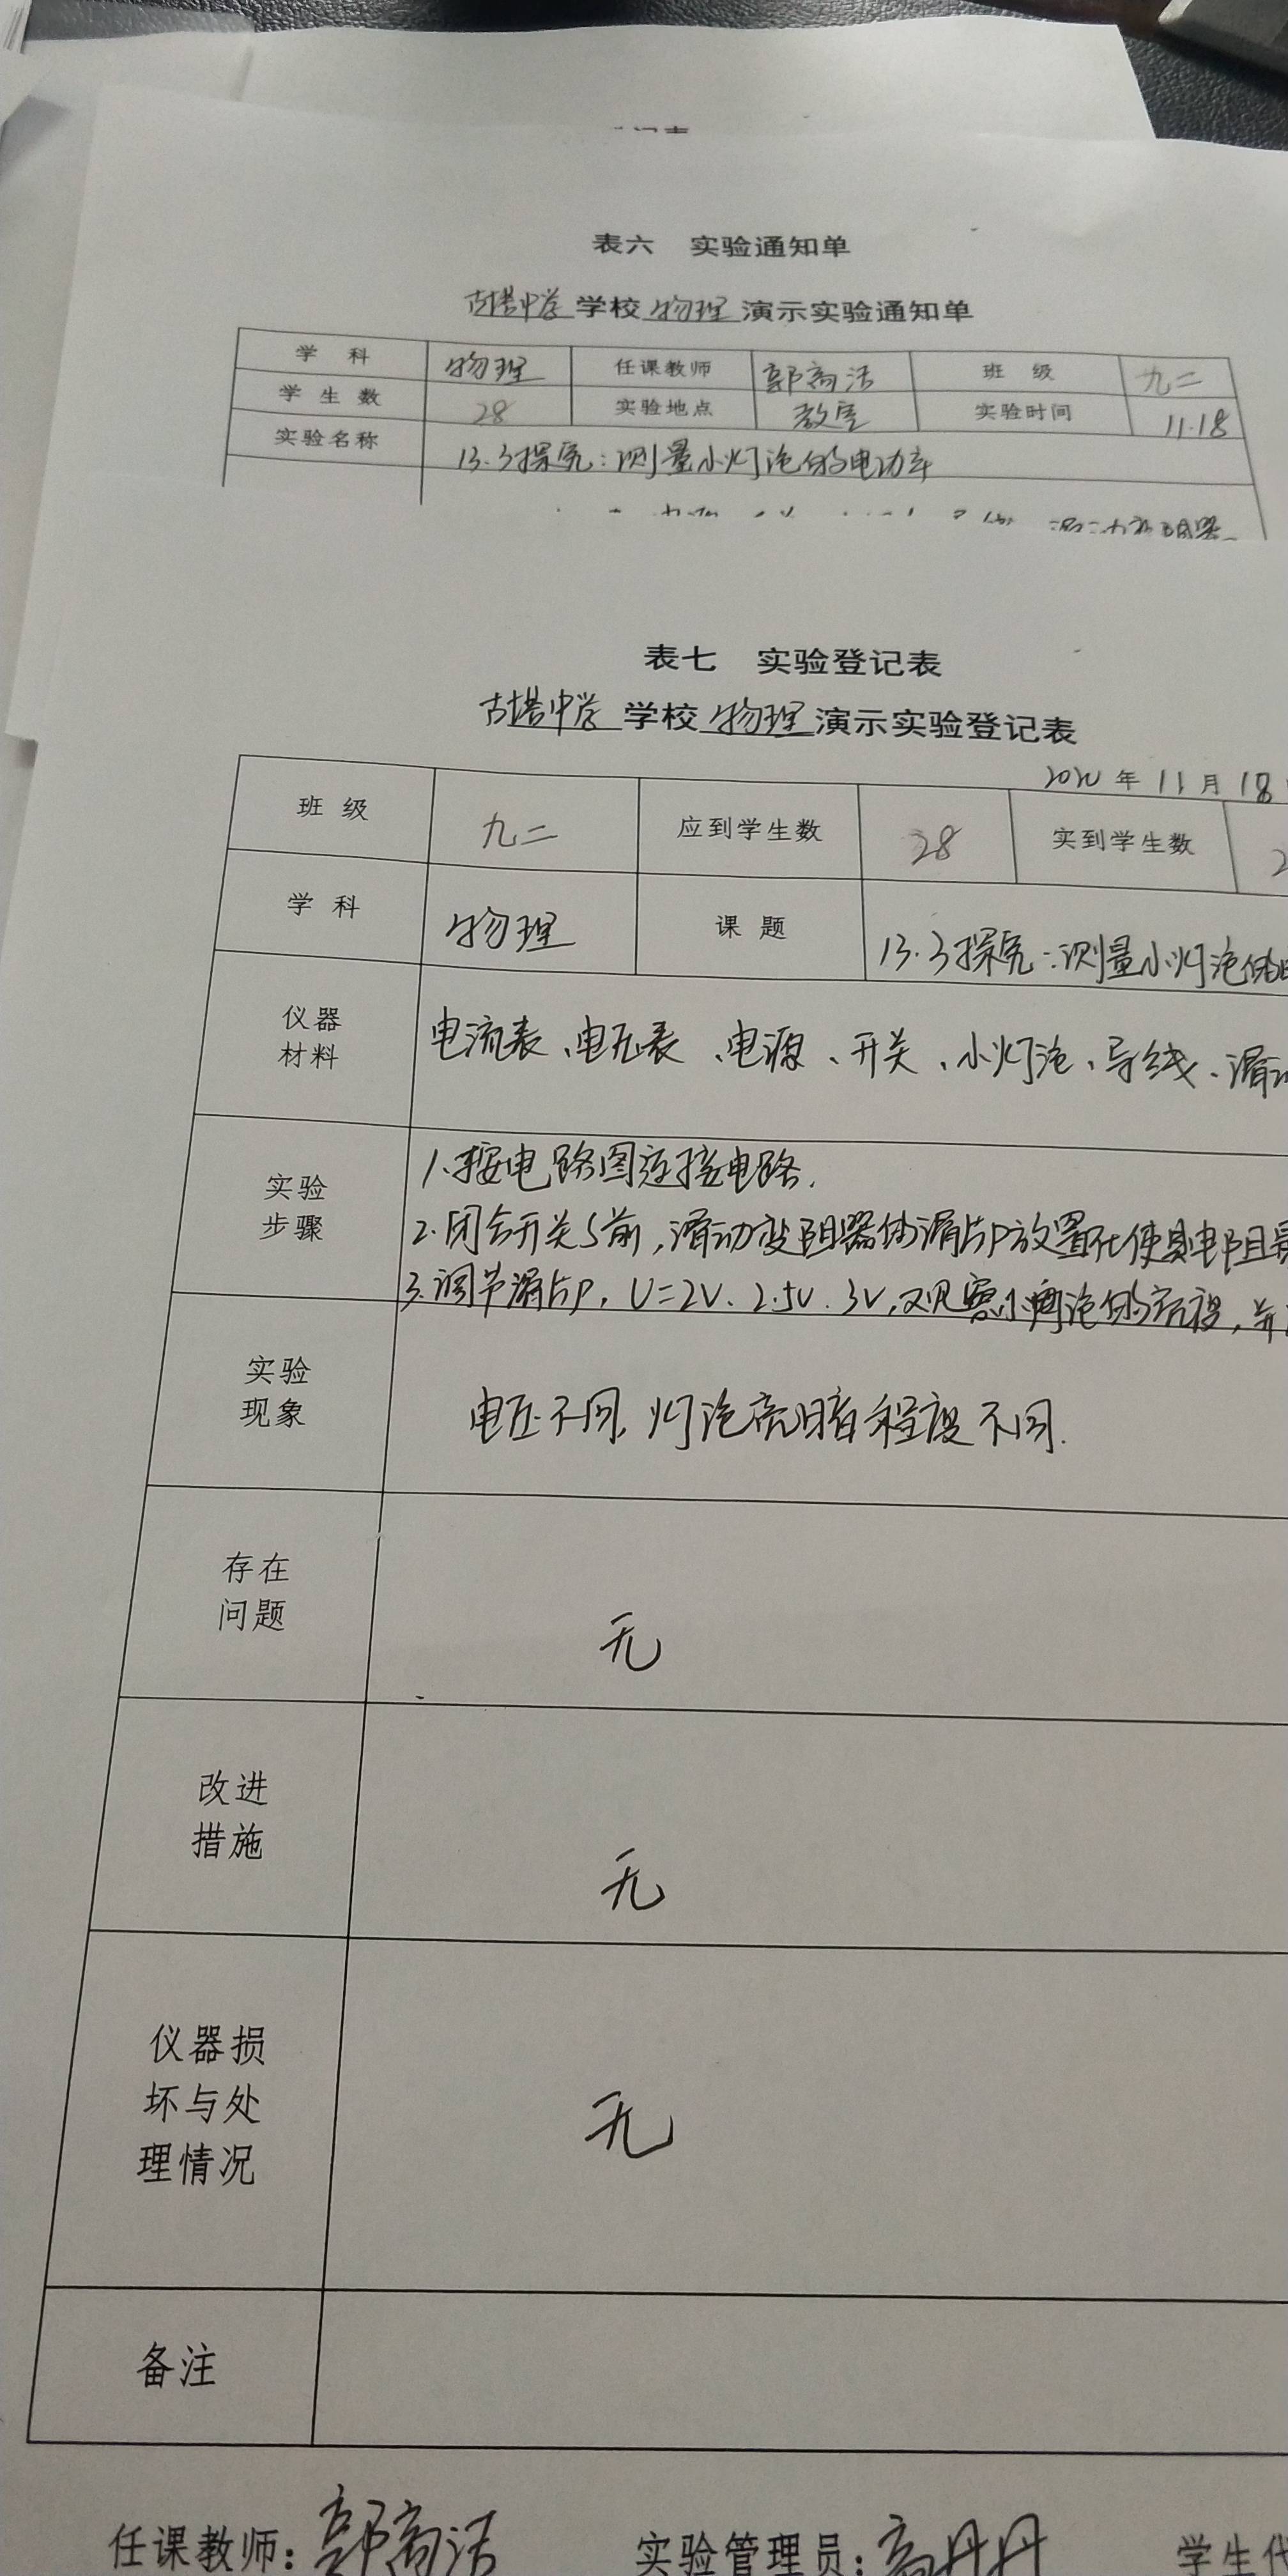 表六 实验通知单
古塔中学 学校 物理 演示实验通知单
学 科 物理 任课教师 郭 洁 班 级 九二
学 生 数 28 实验地点 教室 实验时间 11.18
实验名称 13.3探究:测量小灯泡的电功率
表七 实验登记表
古塔中学 学校 物理 演示实验登记表
2020 年 11 月 18
班 级 九二 应到学生数 28 实到学生数 2
学 科 物理 课 题 13.3探究:测量小灯泡的
仪器材料 电流表、电压表、电源、开关、小灯泡、导线、滑动
实验步骤 1.按电路图连接电路.
2.闭合开关S前,滑动变阻器的滑片P放置在使其电阻最
3.调节滑片P, U=2V、2.5V、3V,观察小灯泡的亮度,并
实验现象 电压不同,灯泡亮暗程度不同.
存在问题 无
改进措施 无
仪器损坏与处理情况 无
备注
任课教师: 郭 洁 实验管理员: 高丹丹 学生代